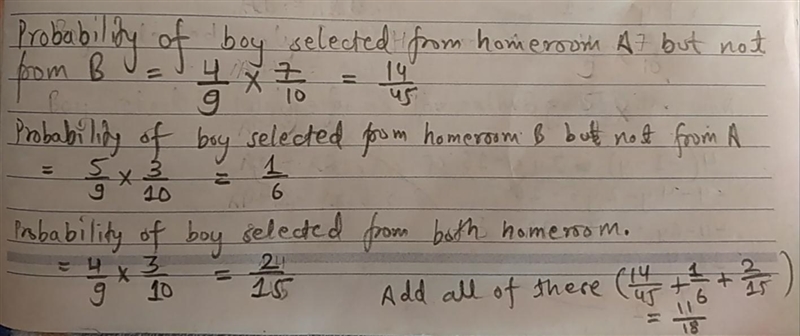 Probability of boy selected from homeroom A but not
from B = 4/9 × 7/10 = 14/45
Probability of boy selected from homeroom B but not from A
= 5/9 × 3/10 = 1/6
Probability of boy selected from both homeroom.
= 4/9 × 3/10 = 2/15
Add all of these (14/45 + 1/6 + 2/15)
= 11/18